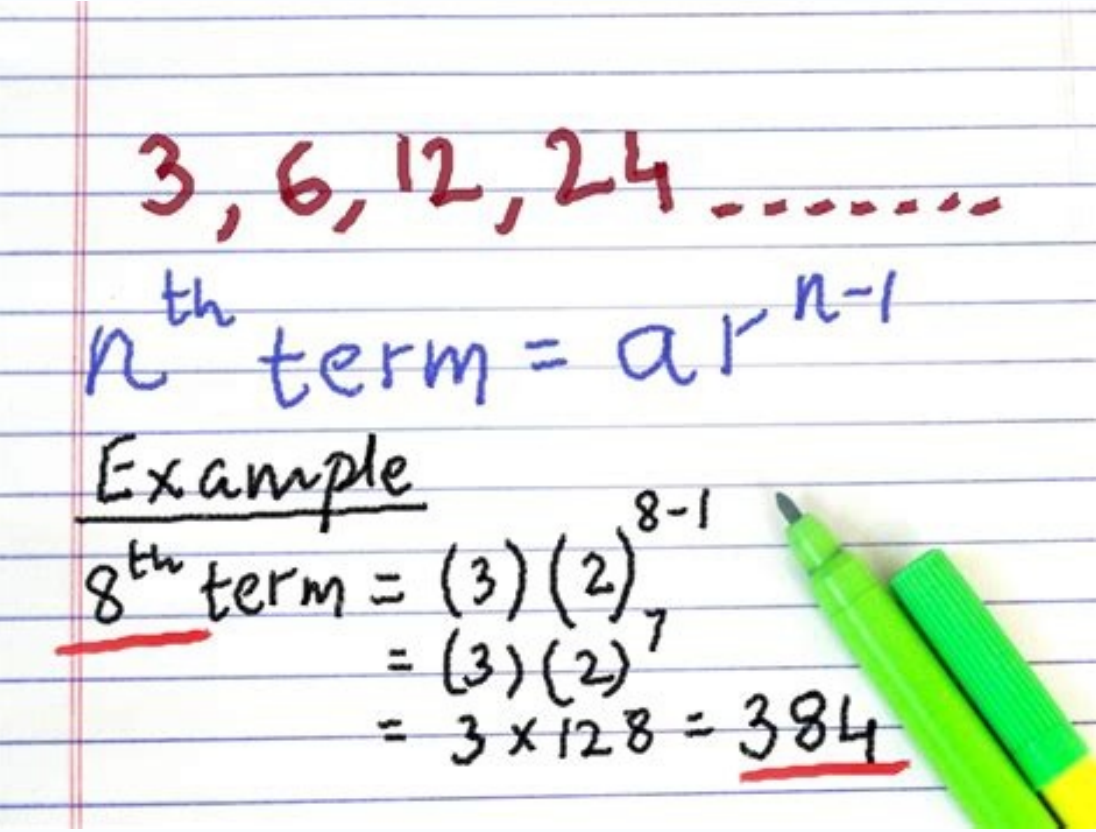 3, 6, 12, 24 .......
nᵗʰ term = arⁿ⁻¹
Example
8ᵗʰ term = (3)(2)⁸⁻¹
= (3)(2)⁷
= 3 × 128 = 384